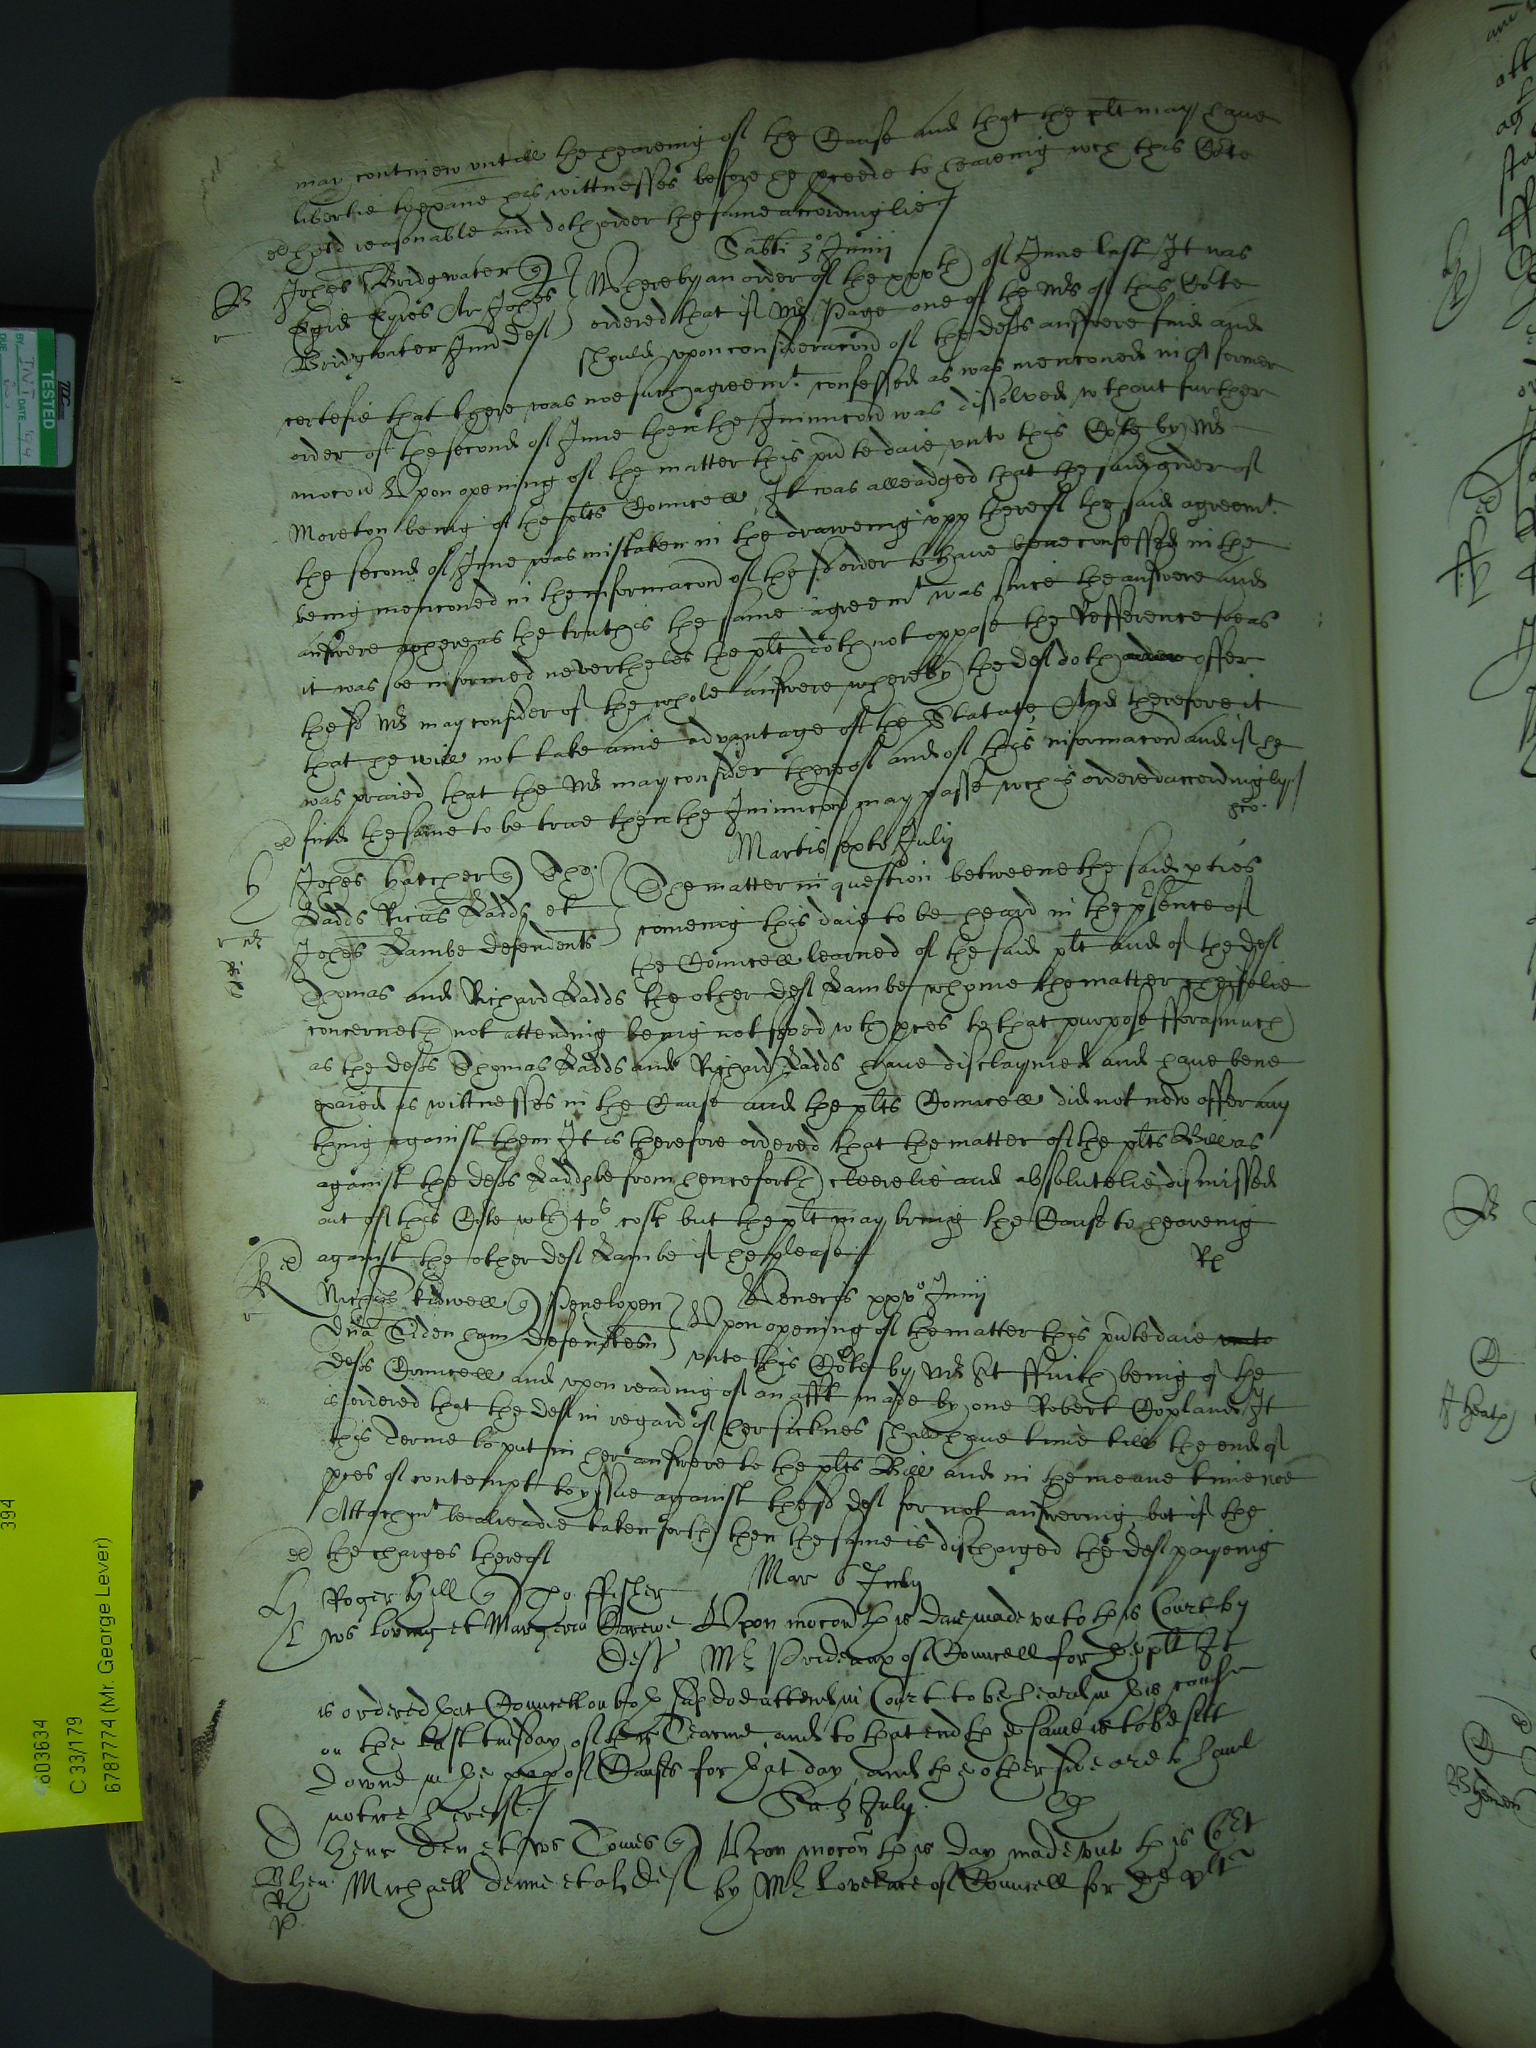 may contniew vntill the heareing of the Cause and that the plt may haue
libertie to exaie his wittnesses before he pceede to heareing wch this Cote
held reasonable and doth order the same accordinglie
Sabti 3° Julij
Johes Bridgwater q
Whereby an order of the xxvth of June last It was
Ar Johes
ordered that if Mr Page one of the Mrs of this Cote
Bridgwater Jun deft
should vpon consideracon of the defts answere find and
certefie that there was noe such agreemt confessed as was menconed in a former
order of the second of June then the Iniunccon was dissolved wthout further
mocon Vpon opening of the matter this pnte daie vnto this Cote by Mr
Moreton being of the plts Councell It was alleadged that the said order of
the second of June was mistaken in the draweing vpp thereof the said agreemt
being menconed in the informacon of the sd order to have bene confessed in the
answere whereas the truth is the same agreemt was since the answere and
it was soe informed nevertheles the plt doth not oppose the Refference soe as
the sd Mr may consider of the whole answere whereby the deft doth offer
that he will not take anie advantage of the Statute And therefore it
was praied that the Mr may consider thereof and of this informacon and if he
find the same to be true then the Iniunccon may passe wch is ordered accordingly
Martis sexto Julij
Johes Hatcher q Tho:
The matter in question betweene the said pties
Ladds Ricus Ladds et
comeing this daie to be heard in the psence of
Johes Lambe defendents
the Councell learned of the said plt and of the deft
Thomas and Richard Ladds the other deft Lambe whome the matter cheifelie
concerneth not attending being not served wth pces to that purpose fforasmuch
as the defts Thomas Ladds and Richard Ladds haue disclaymed and haue bene
exaied as wittnesses in the Cause and the plts Councell did not now offer any
thing against them It is therefore ordered that the matter of the plts Bill as
against the defts Ladds be from henceforth cleerelie and absolutelie dismissed
out of this Cote wth 40s cost but the plt may bring the Cause to heareing
against the other deft Lambe if he please
Rh
Veneris xxv° Junij
Nichus Kidwell q Penelopen
Vpon opening of the matter this pnte daie
Dna Tiden ham defendtem
vnto this Cote by Mr St ffinch being of the
defts Councell and vpon reading of an afft made by one Robert Copland It
is ordered that the deft in regard of her sicknes shall haue time till the end of
this Terme to put in her answere to the plts Bill and in the meane time noe
pces of contempt to yssue against the sd deft for not answering but if the
Attachmt be alreadie taken forth then the same is discharged the deft payeing
the charges thereof
Mar 6 July
Roger Hill q Tho ffisher
Vpon mocon this daie made vnto this Court by
defts Mr Prideaux of Councell for the plt It
is ordered that Councell on both sids doe attend in Court to be heard in this cause
on the last tuesday of this Tearme and to that end the same is to be sett
downe in the paper of Causes for that day and the other side are to haue
notice hereof
Sa. 3 July
Vpon mocon this day made vnto this Cort
Michaell denne et al deft by Mr Lovelace of Councell for the plts
TESTED
394
603634
C 33/179
6787774 (Mr. George Lever)